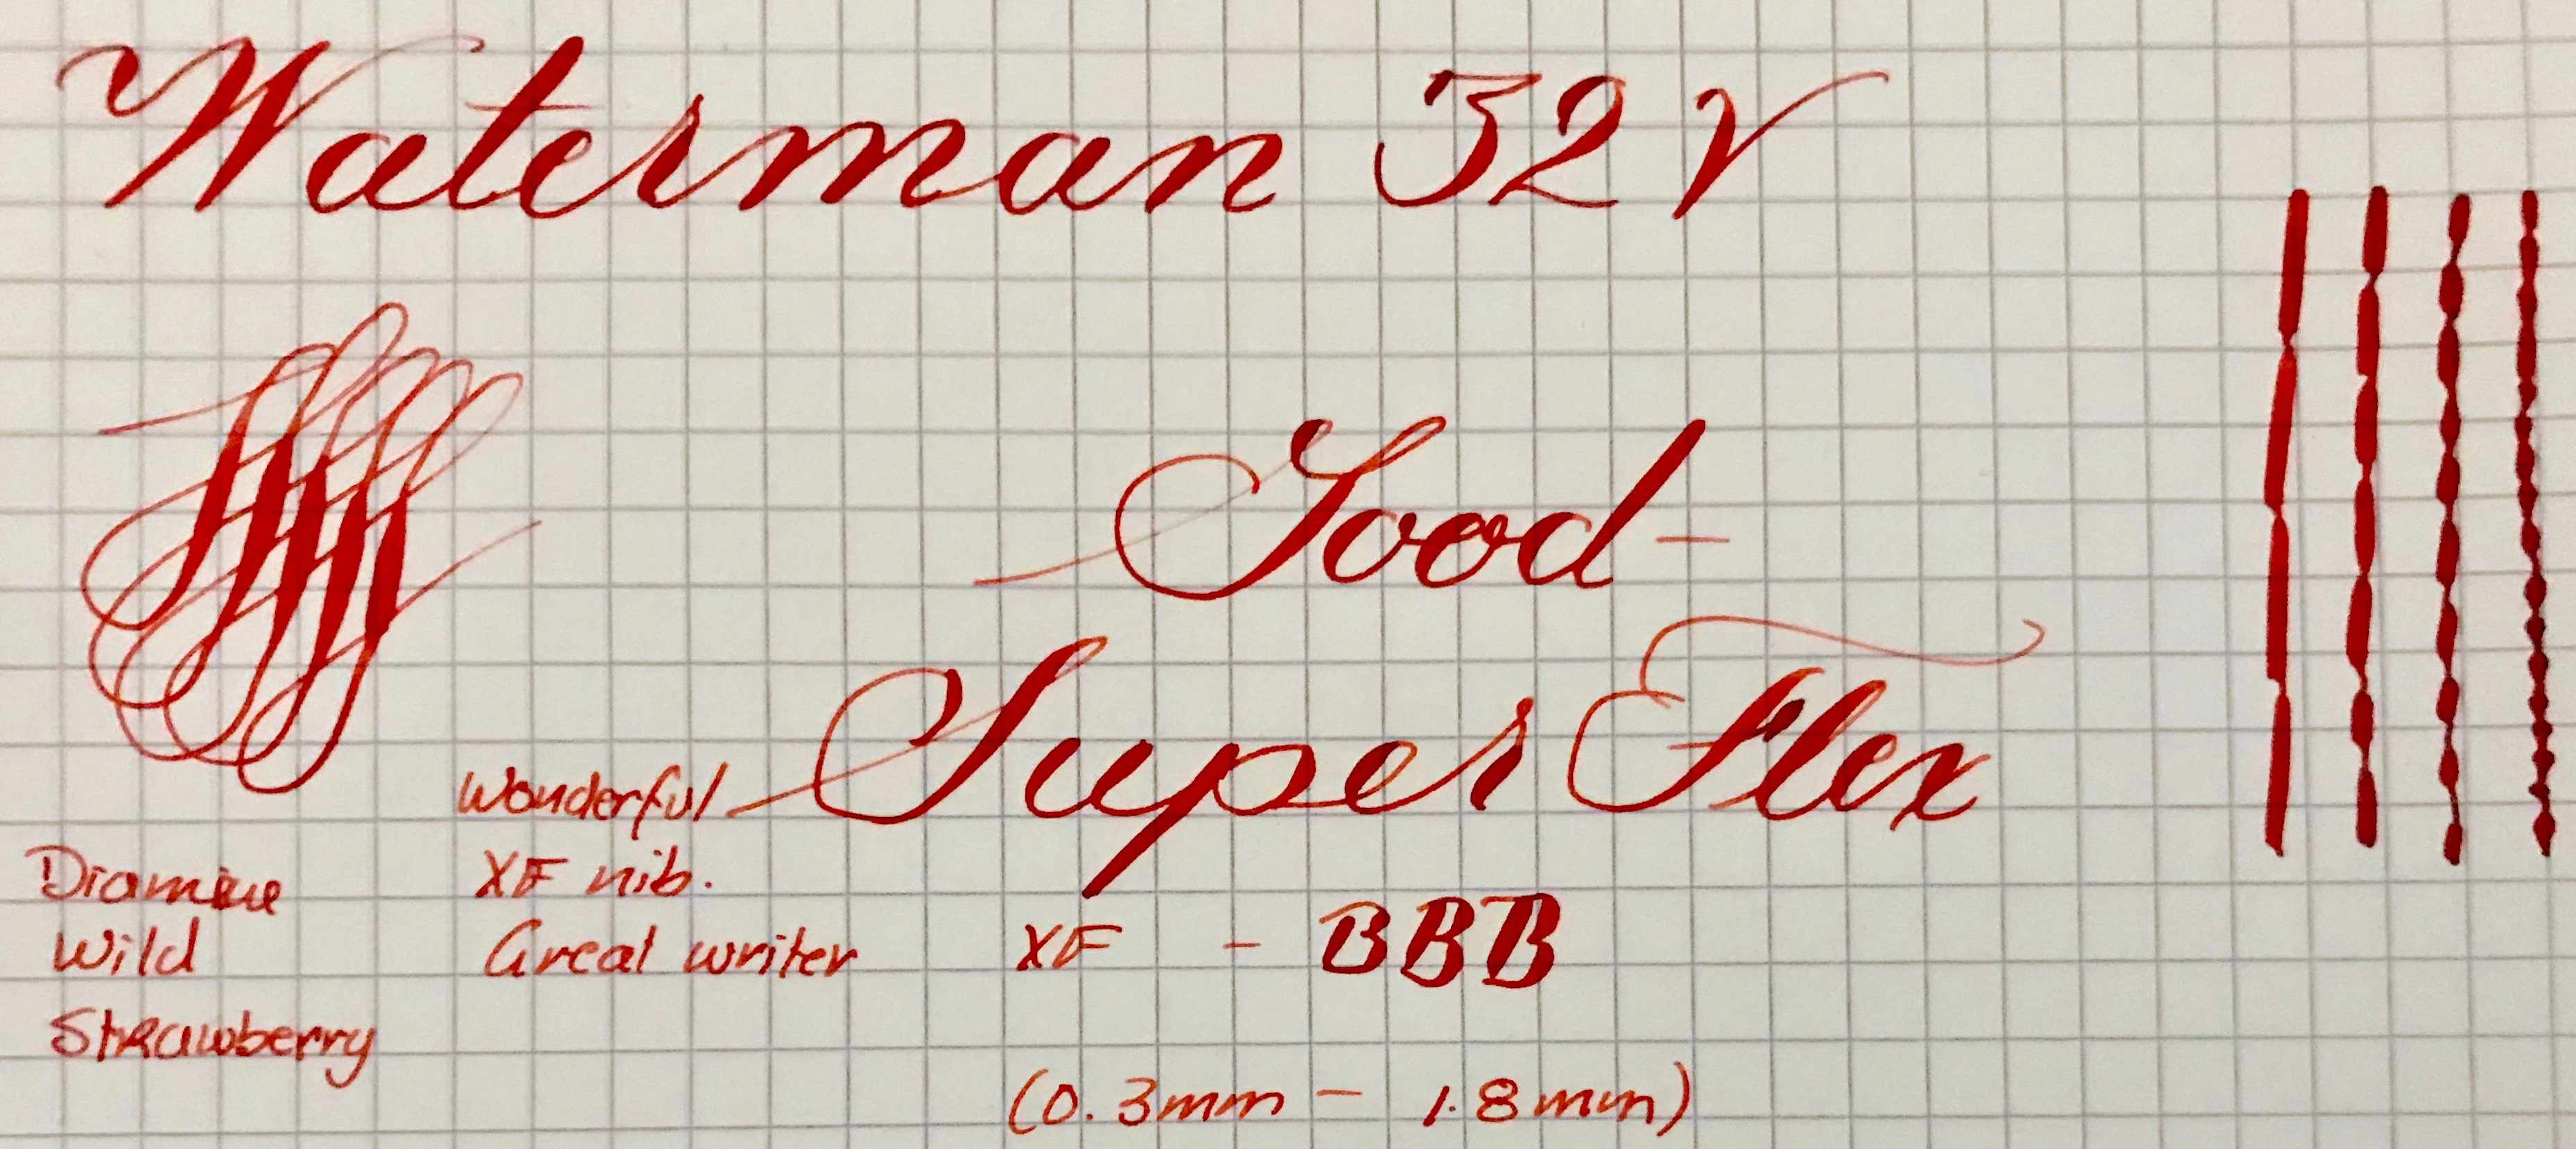 Waterman 32V
Good-
Super Flex
Wonderful
XF nib.
Great writer
Diamine
Wild
Strawberry
XF - BBB
(0.3mm - 1.8mm)